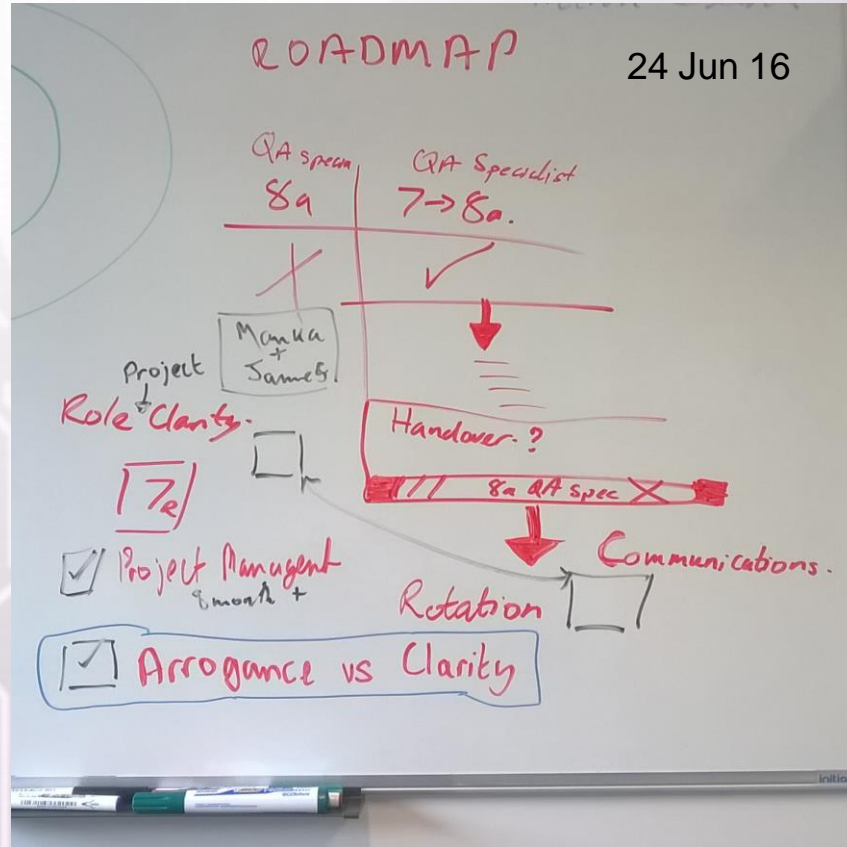 ROADMAP
24 Jun 16
QA Specialist
8a
7→8a.
+
James
Project
Role Clarity.
Handover. ?
8a QA spec
Project Managent
8 month +
Communications.
Rotation
Arrogance vs Clarity